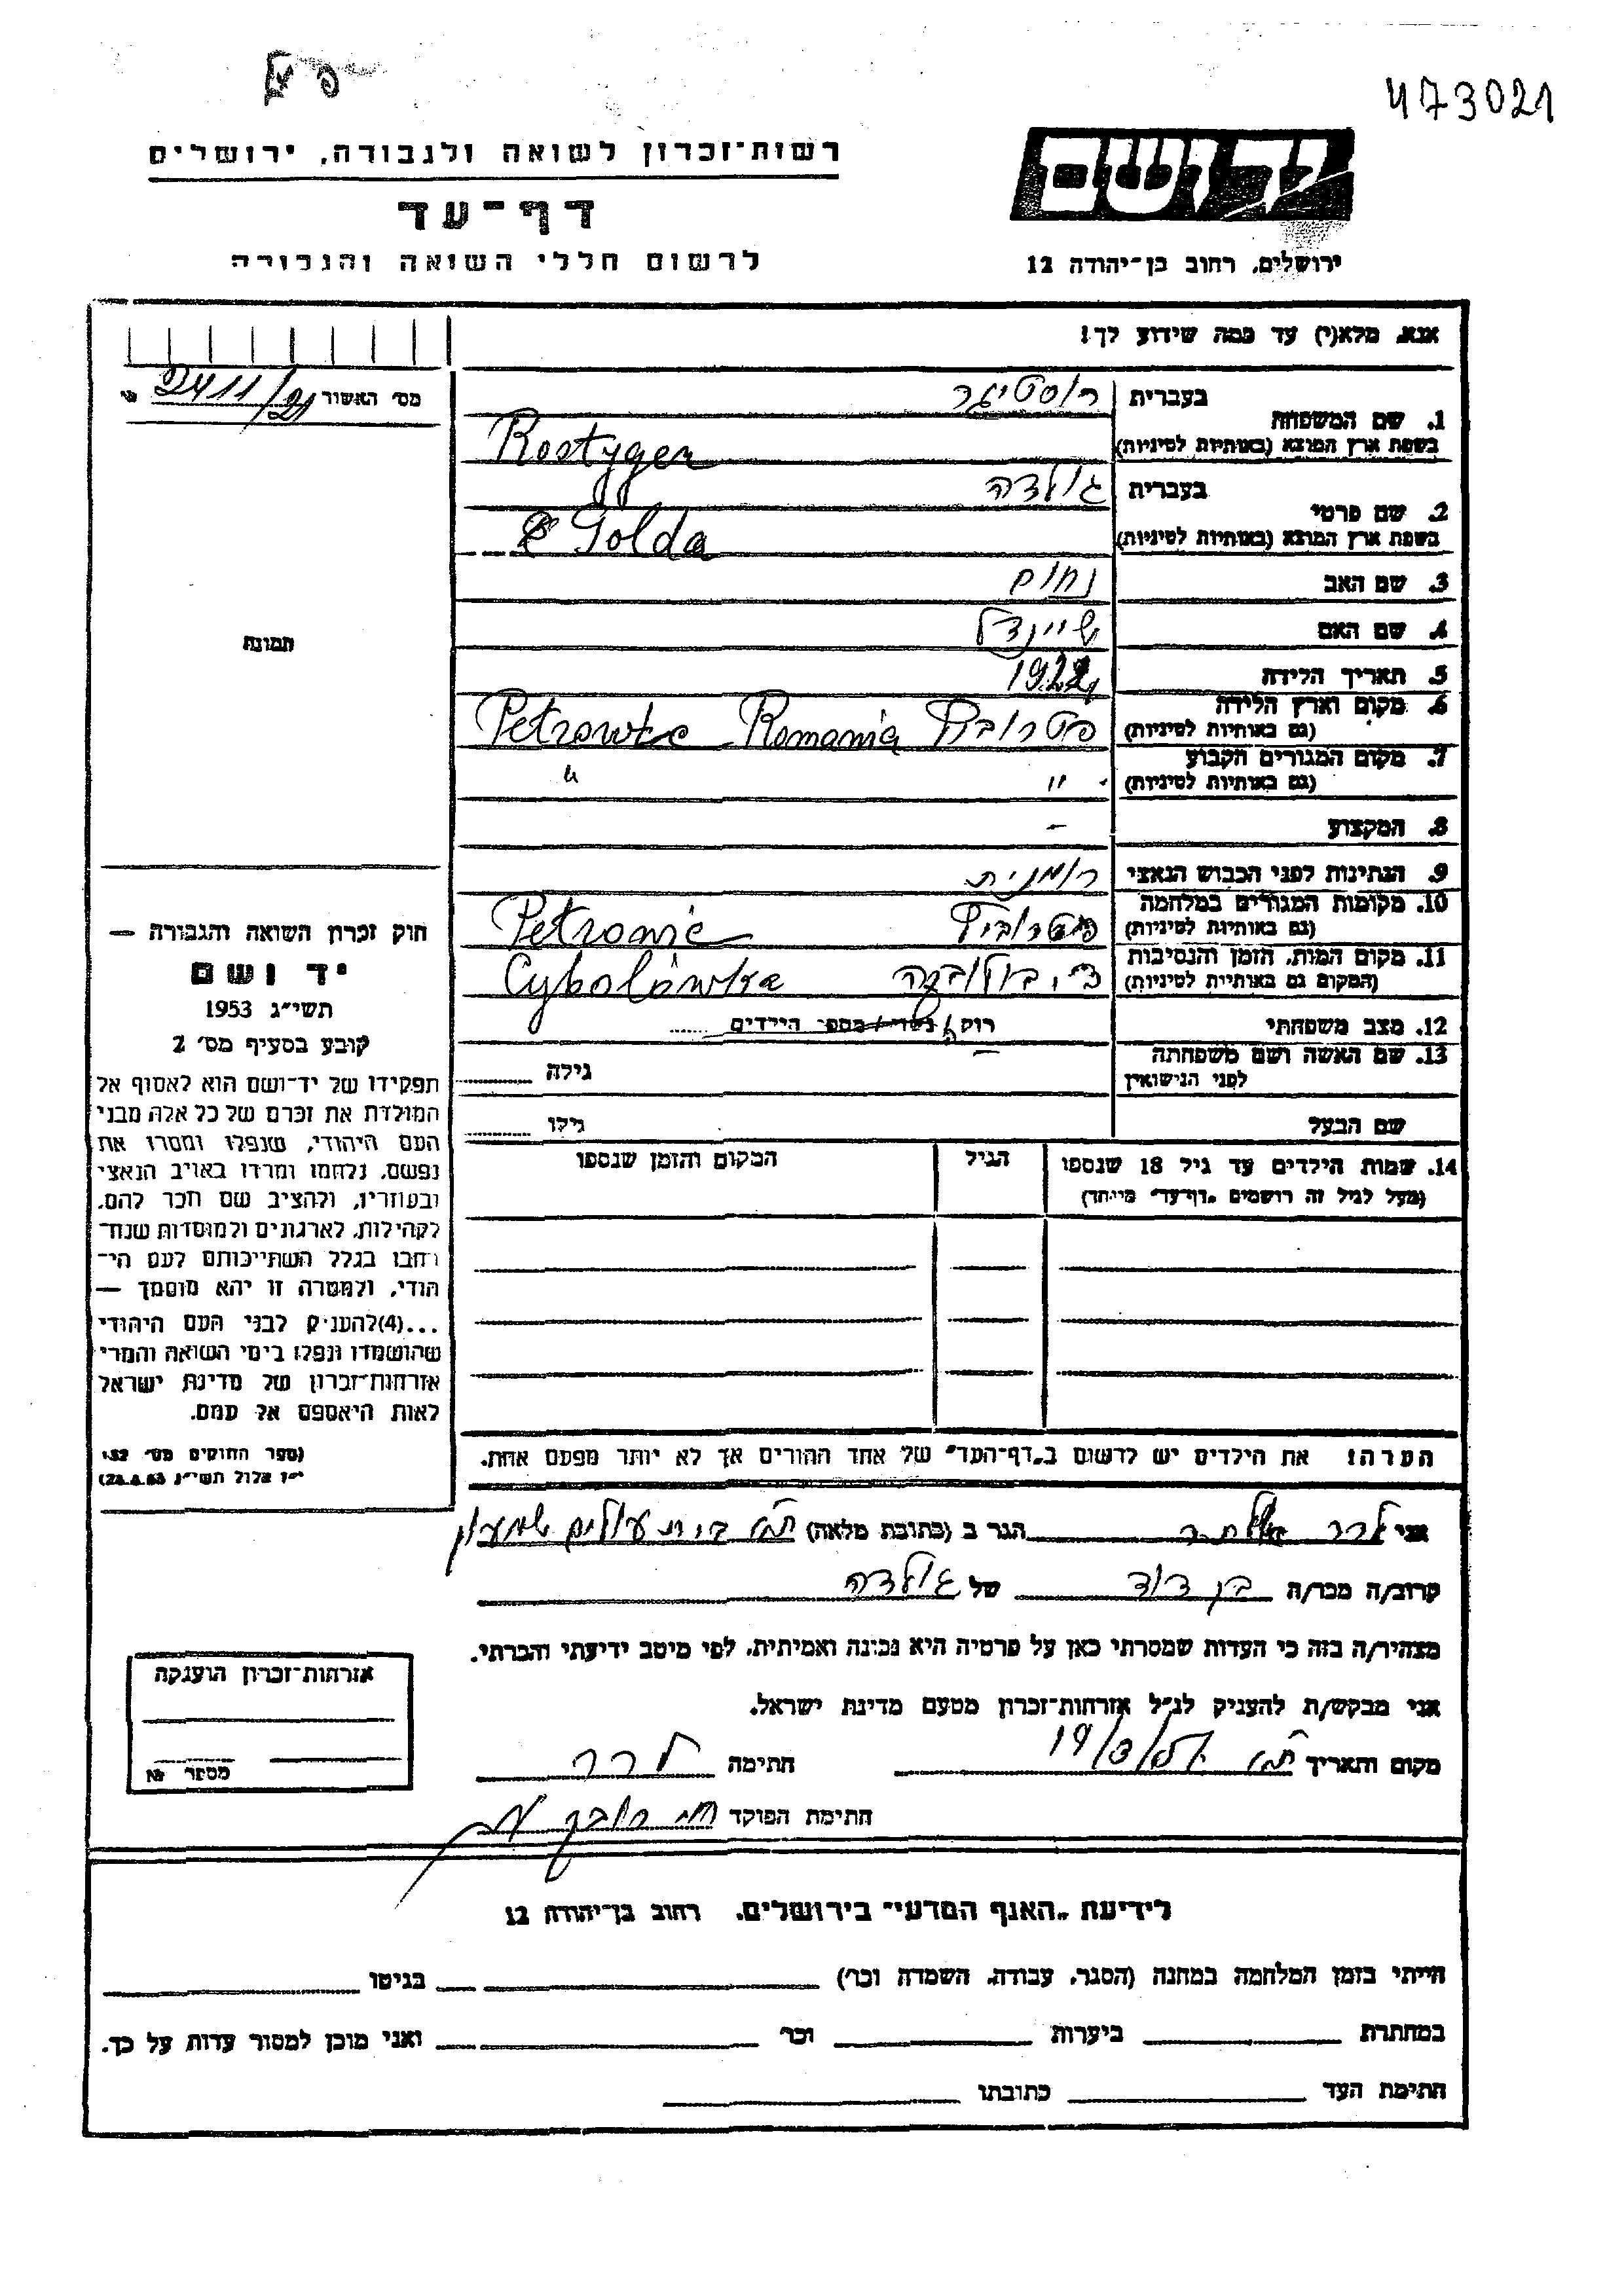 473021
רשות־זכרון לשואה ולגבורה, ירושלים
דף־עד
לרשום חללי השואה והגבורה
יד ושם
ירושלים, רחוב בן־יהודה 12
אנא, מלא(י) עד כמה שידוע לך!
מס' האשור 2411/21
1. שם המשפחה
בעברית רוסטיגר
בשפת ארץ המוצא (באותיות לטיניות) Rostyger
2. שם פרטי
בעברית גולדה
בשפת ארץ המוצא (באותיות לטיניות) Golda
3. שם האב נחום
4. שם האם שיינדל
5. תאריך הלידה 1922
6. מקום וארץ הלידה
(גם באותיות לטיניות) Romania
7. מקום המגורים הקבוע
(גם באותיות לטיניות) " "
8. המקצוע -
9. הנתינות לפני הכבוש הנאצי רומנית
10. מקומות המגורים במלחמה
(גם באותיות לטיניות)
11. מקום המות, הזמן והנסיבות
(המקום גם באותיות לטיניות) Cybolówka ציבולובקה
12. מצב משפחתי רוקה/נשוי/מספר הילדים
13. שם האשה ושם משפחתה
לפני הנישואין – גילה
שם הבעל גילו
14. שמות הילדים עד גיל 18 שנספו
(מעל לגיל זה רושמים „דף־עד” מיוחד)
הגיל
המקום והזמן שנספו
הערה! את הילדים יש לרשום ב„דף־העד” של אחד ההורים אך לא יותר מפעם אחת.
תמונה
חוק זכרון השואה והגבורה —
יד ושם
תשי״ג 1953
קובע בסעיף מס' 2
תפקידו של יד־ושם הוא לאסוף אל
המולדת את זכרם של כל אלה מבני
העם היהודי, שנפלו ומסרו את
נפשם, נלחמו ומרדו באויב הנאצי
ובעוזריו, ולהציב שם וזכר להם,
לקהילות, לארגונים ולמוסדות שנח־
רבו בגלל השתייכותם לעם הי־
הודי, ולמטרה זו יהא מוסמך —
...(4) להעניק לבני העם היהודי
שהושמדו ונפלו בימי השואה והמרי
אזרחות־זכרון של מדינת ישראל
לאות היאספם אל עמם.
(ספר החוקים מס' 132,
י״ז אלול תשי״ג 28.8.53)
אני הגר ב (כתובת מלאה) בית עולים שמעון
קרוב/ה מכר/ה בן דוד של גולדה
מצהיר/ה בזה כי העדות שמסרתי כאן על פרטיה היא נכונה ואמיתית, לפי מיטב ידיעתי והכרתי.
אני מבקש/ת להעניק לנ״ל אזרחות־זכרון מטעם מדינת ישראל.
מקום ותאריך חתימה
חתימת הפוקד
אזרחות־זכרון הוענקה
מספר №
לידיעת „האגף המדעי” בירושלים, רחוב בן־יהודה 12
הייתי בזמן המלחמה במחנה (הסגר, עבודה, השמדה וכו') בגיטו
במחתרת ביערות וכו' ואני מוכן למסור עדות על כך.
חתימת העד כתובתו